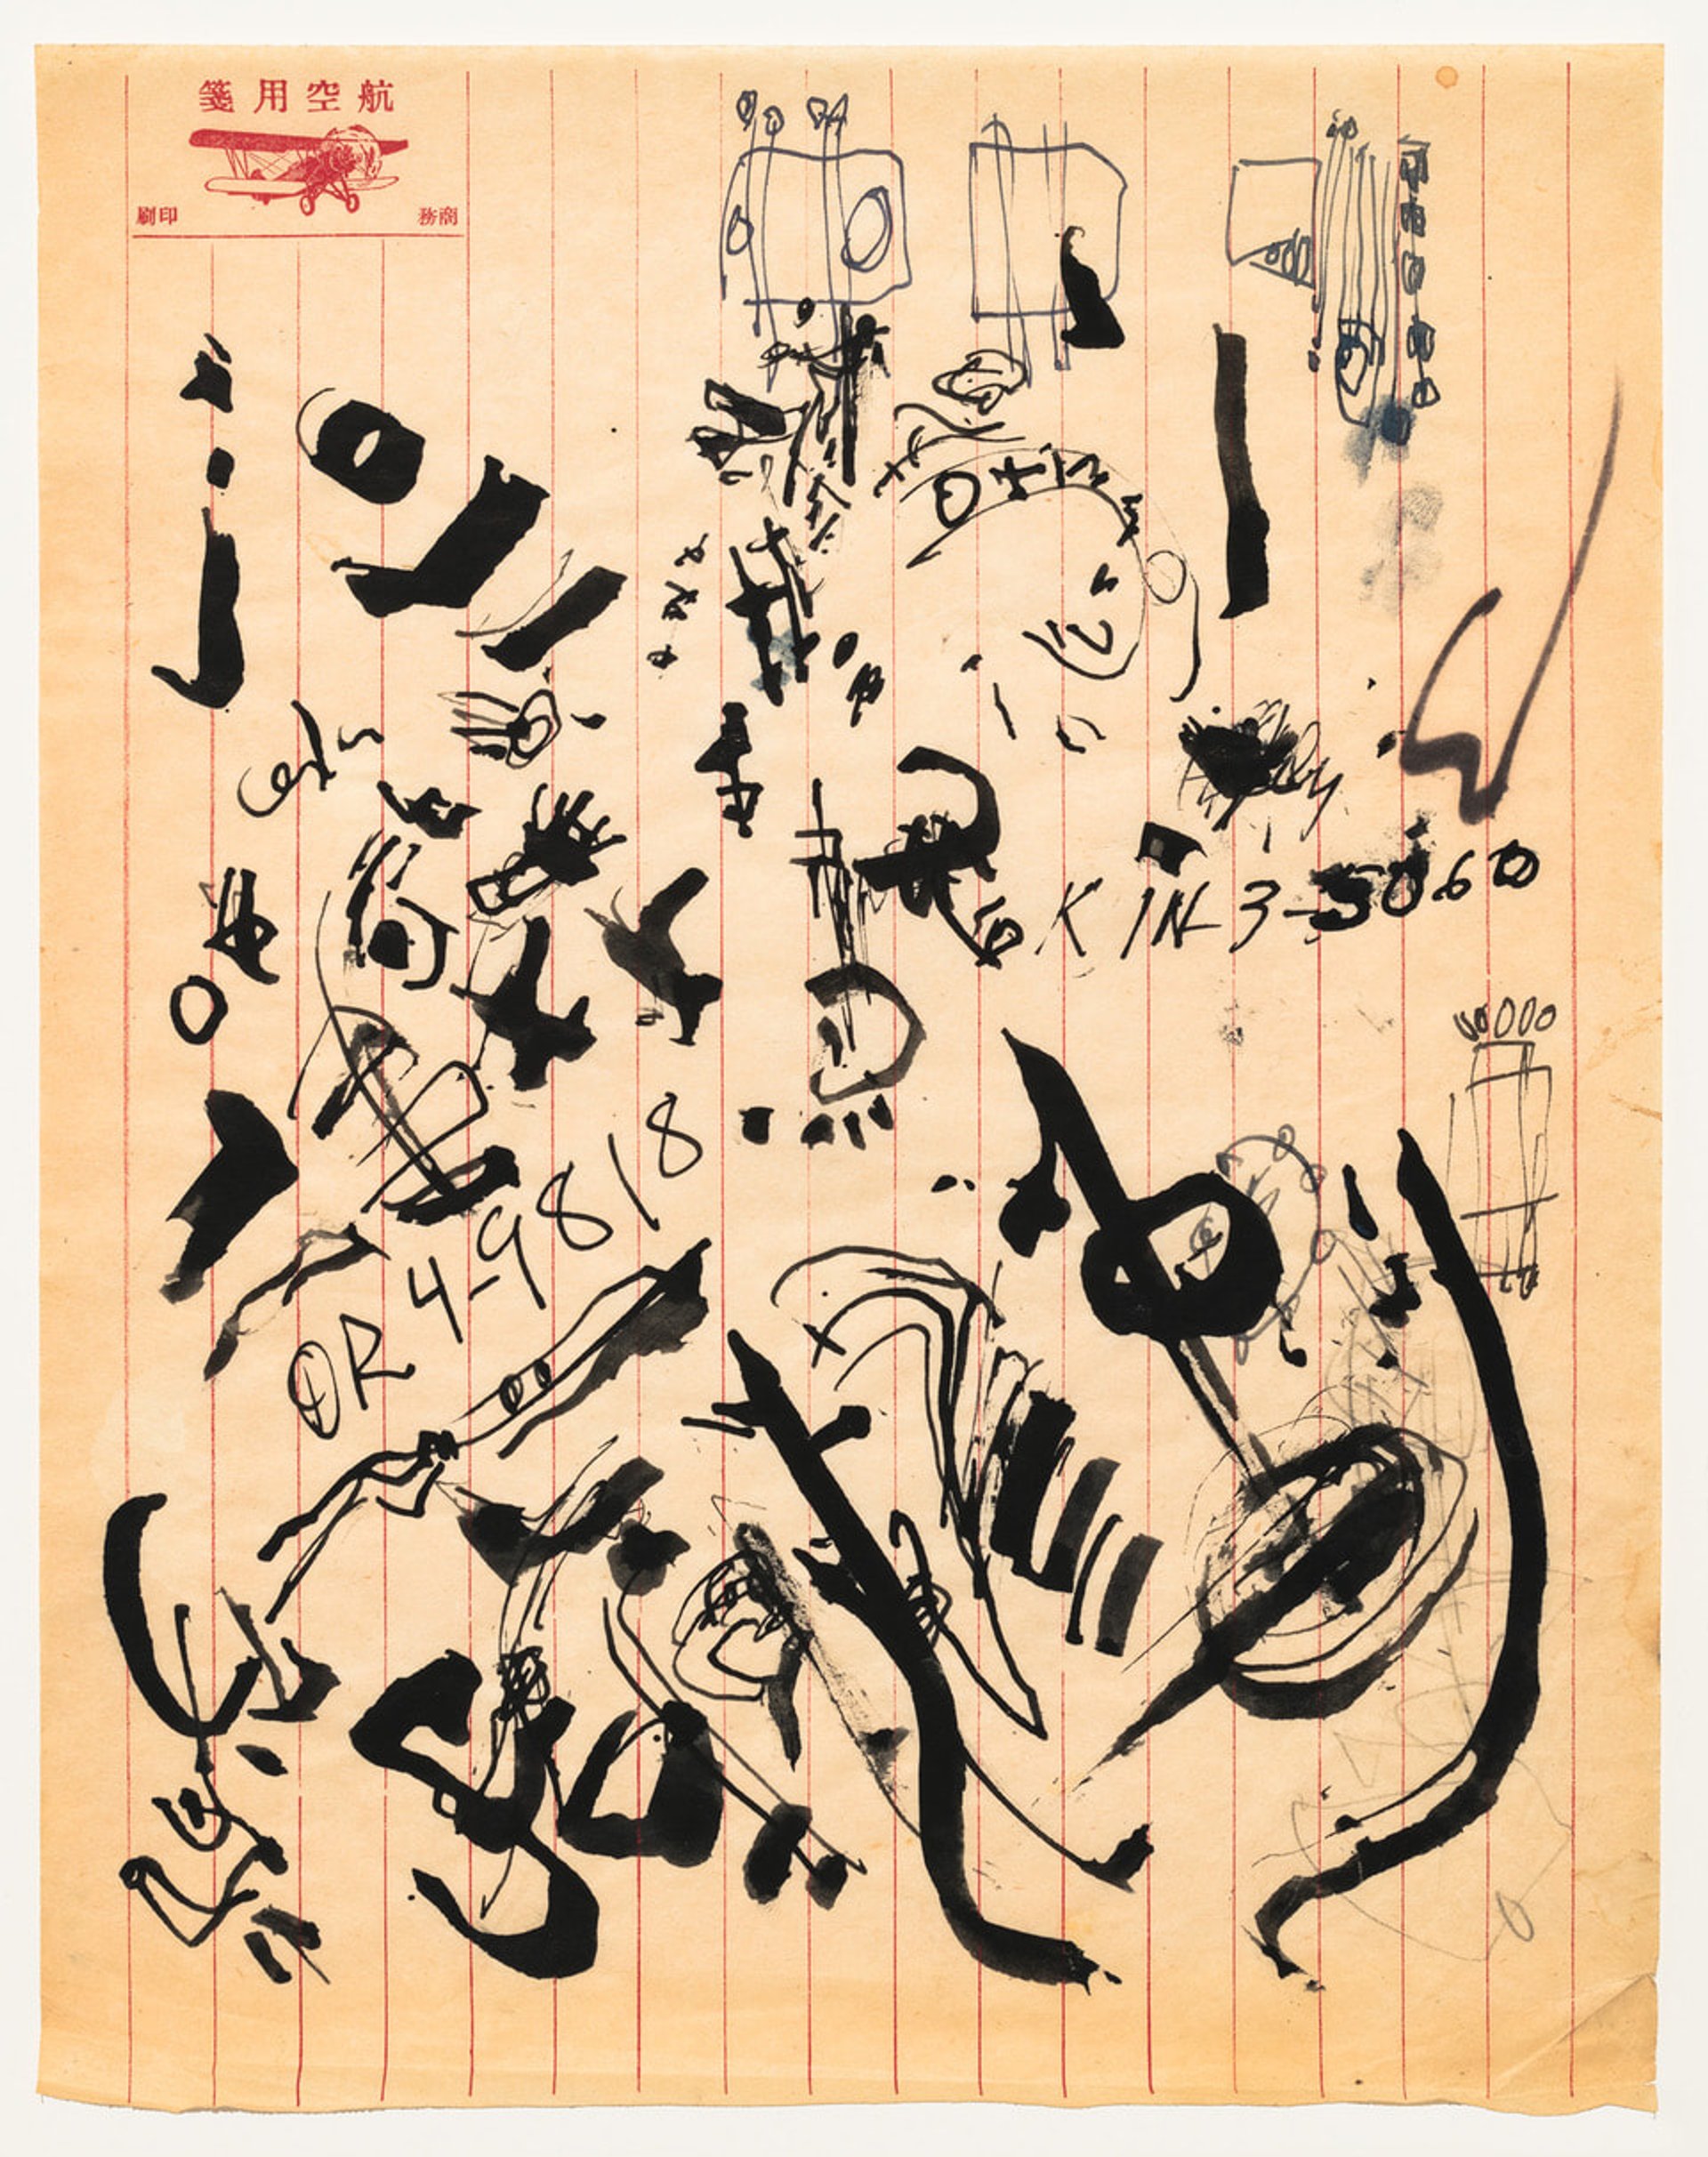 航空用箋
商務
印刷
KIN 3-5060
OR 4-9818